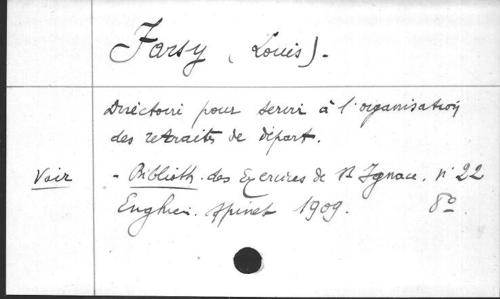 Farsy (Louis).
Directoire pour servir à l'organisation
des retraites de départ.
Voir - Biblioth. des Exercices de St Ignace. n° 22
Enghien. Spinet 1909. 8o